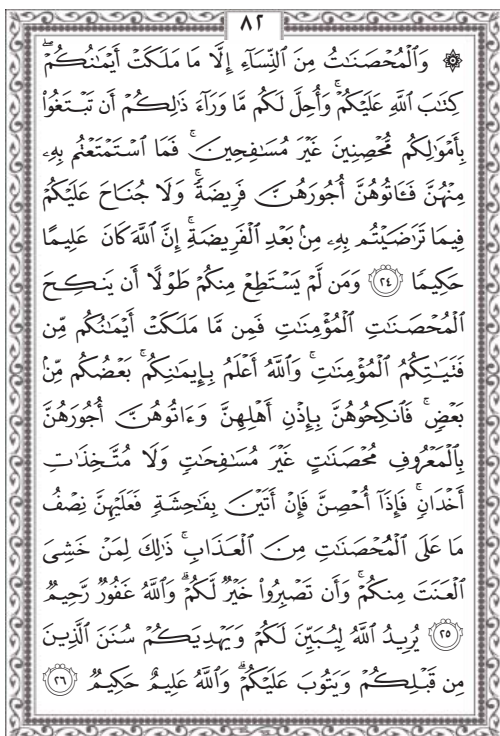 ٨٢
۞ وَٱلْمُحْصَنَٰتُ مِنَ ٱلنِّسَآءِ إِلَّا مَا مَلَكَتْ أَيْمَٰنُكُمْ ۖ
كِتَٰبَ ٱللَّهِ عَلَيْكُمْ ۚ وَأُحِلَّ لَكُم مَّا وَرَآءَ ذَٰلِكُمْ أَن تَبْتَغُوا۟
بِأَمْوَٰلِكُم مُّحْصِنِينَ غَيْرَ مُسَٰفِحِينَ ۚ فَمَا ٱسْتَمْتَعْتُم بِهِۦ
مِنْهُنَّ فَـَٔاتُوهُنَّ أُجُورَهُنَّ فَرِيضَةً ۚ وَلَا جُنَاحَ عَلَيْكُمْ
فِيمَا تَرَٰضَيْتُم بِهِۦ مِنۢ بَعْدِ ٱلْفَرِيضَةِ ۚ إِنَّ ٱللَّهَ كَانَ عَلِيمًا
حَكِيمًا ٢٤ وَمَن لَّمْ يَسْتَطِعْ مِنكُمْ طَوْلًا أَن يَنكِحَ
ٱلْمُحْصَنَٰتِ ٱلْمُؤْمِنَٰتِ فَمِن مَّا مَلَكَتْ أَيْمَٰنُكُم مِّن
فَتَيَٰتِكُمُ ٱلْمُؤْمِنَٰتِ ۚ وَٱللَّهُ أَعْلَمُ بِإِيمَٰنِكُم ۚ بَعْضُكُم مِّنۢ
بَعْضٍ ۚ فَٱنكِحُوهُنَّ بِإِذْنِ أَهْلِهِنَّ وَءَاتُوهُنَّ أُجُورَهُنَّ
بِٱلْمَعْرُوفِ مُحْصَنَٰتٍ غَيْرَ مُسَٰفِحَٰتٍ وَلَا مُتَّخِذَٰتِ
أَخْدَانٍ ۚ فَإِذَآ أُحْصِنَّ فَإِنْ أَتَيْنَ بِفَٰحِشَةٍ فَعَلَيْهِنَّ نِصْفُ
مَا عَلَى ٱلْمُحْصَنَٰتِ مِنَ ٱلْعَذَابِ ۚ ذَٰلِكَ لِمَنْ خَشِىَ
ٱلْعَنَتَ مِنكُمْ ۚ وَأَن تَصْبِرُوا۟ خَيْرٌ لَّكُمْ ۗ وَٱللَّهُ غَفُورٌ رَّحِيمٌ
٢٥ يُرِيدُ ٱللَّهُ لِيُبَيِّنَ لَكُمْ وَيَهْدِيَكُمْ سُنَنَ ٱلَّذِينَ
مِن قَبْلِكُمْ وَيَتُوبَ عَلَيْكُمْ ۗ وَٱللَّهُ عَلِيمٌ حَكِيمٌ ٢٦